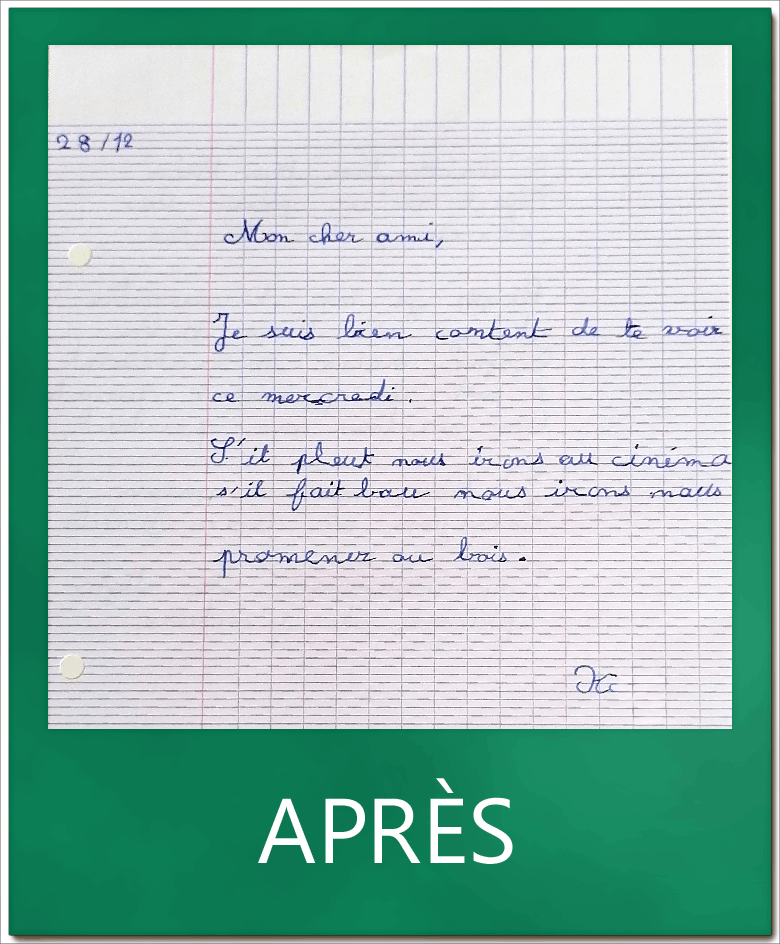 28/12
Mon cher ami,
Je suis bien content de te voir
ce mercredi.
S'il pleut nous irons au cinéma
s'il fait bau nous irons nous
promener au bois.
APRÈS